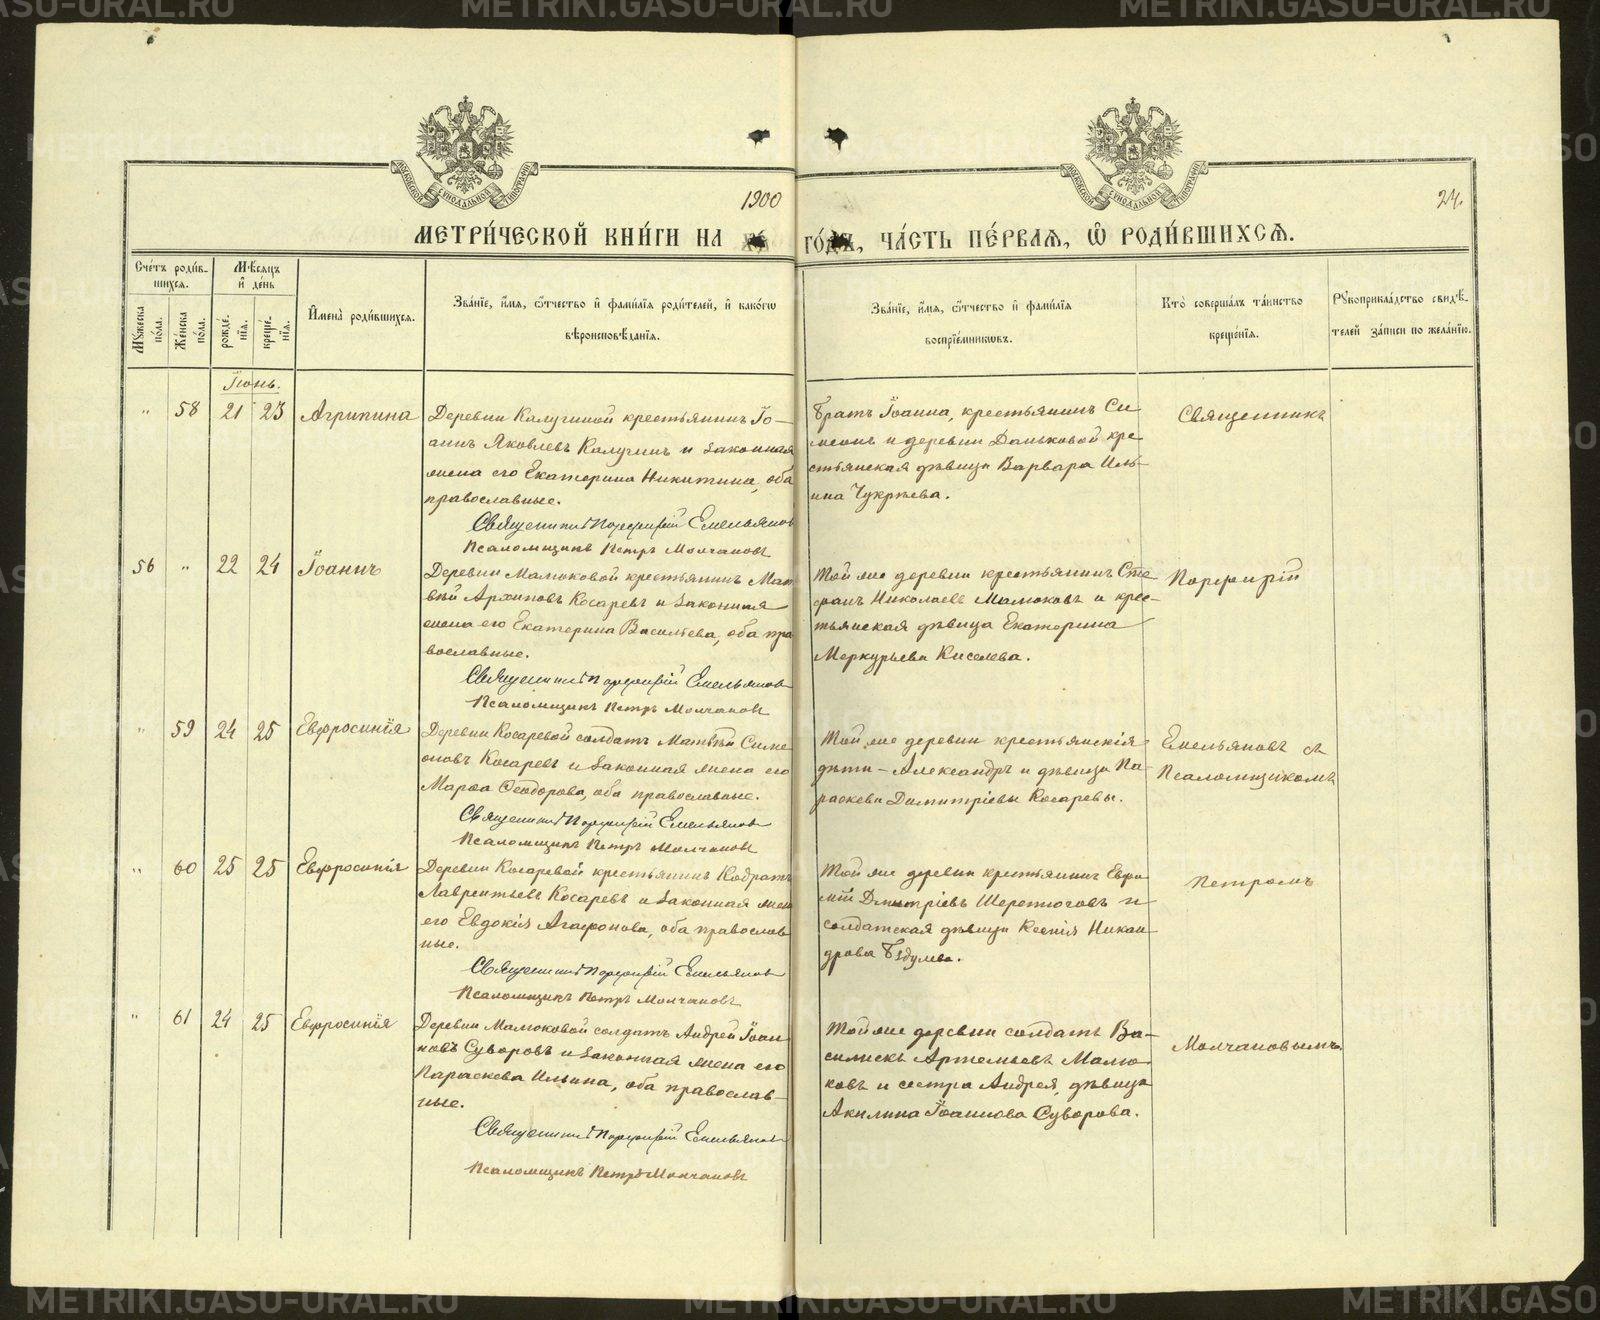 METRIKI.GASU-URAL.RU
МОСКОВСКОЙ СѴНОДАЛЬНОЙ ТИПОГРАФІИ
МОСКОВСКОЙ СѴНОДАЛЬНОЙ ТИПОГРАФІИ
1900
24.
МЕТРИ́ЧЕСКОЙ КНИ́ГИ НА
ГО́ДЪ, ЧА́СТЬ ПЕ́РВАЯ, Ѽ РОДИ́ВШИХСЯ.
Сче́тъ роди́в-
шихся.
Мꙋжеска по́ла.
Же́нска по́ла.
Мѣ́сяцъ и҆ де́нь
рожде́-нїя.
креще́-нїя.
И҆мена̀ роди́вшихся.
Зва́нїе, и҆́мя, ѻ҆́тчество и҆ фами́лїя роди́телей, и҆ како́гѡ
вѣроисповѣ́данїя.
Зва́нїе, и҆́мя, ѻ҆́тчество и҆ фами́лїя
воспрїе́мникѡвъ.
Кто̀ соверша́лъ та́инство
креще́нїя.
Рꙋкоприкла́дство свидѣ́-
телей за́писи по жела́нїю.
Іюнь.
" 58 21 23 Агрипина
Деревни Калугиной крестьянинъ Іо-
аннъ Яковлевъ Калугинъ и законная
жена его Екатерина Никитина, оба
православные.
Священникъ Порфирій Емельяновъ
Псаломщикъ Петръ Молчановъ
Братъ Іоанна, крестьянинъ Си
меонъ и деревни Даньковой кре
стьянская дѣвица Варвара Иль-
ина Чукрѣева.
Священникъ
56 " 22 24 Іоаннъ
Деревни Малюковой крестьянинъ Мат
вѣй Архиповъ Косаревъ и законная
жена его Екатерина Васильева, оба пра
вославные.
Священникъ Порфирій Емельяновъ
Псаломщикъ Петръ Молчановъ
Той же деревни крестьянинъ Сте
фанъ Николаевъ Малюковъ и крес-
тьянская дѣвица Екатерина
Меркурьева Киселева.
Порфирій
" 59 24 25 Евфросинія
Деревни Косаревой солдатъ Матвѣй Симе
оновъ Косаревъ и законная жена его
Марѳа Ѳеодорова, оба православные.
Священникъ Порфирій Емельяновъ
Псаломщикъ Петръ Молчановъ
Той же деревни крестьянскія
дѣти - Александръ и дѣвица Па-
раскева Димитріевы Косаревы.
Емельяновъ съ
Псаломщикомъ
" 60 25 25 Евфросинія
Деревни Косаревой крестьянинъ Кодратъ
Лаврентьевъ Косаревъ и законная жена
его Евдокія Агафонова, оба православ
ные.
Священникъ Порфирій Емельяновъ
Псаломщикъ Петръ Молчановъ
Той же деревни крестьянинъ Евфи
мій Дмитріевъ Шерстюговъ и
солдатская дѣвица Ксенія Никан
дрова
Петромъ
" 61 24 25 Евфросинія
Деревни Малюковой солдатъ Андрей Іоан
новъ Суворовъ и законная жена его
Параскева Ильина, оба православ-
ные.
Священникъ Порфирій Емельяновъ
Псаломщикъ Петръ Молчановъ
Той же деревни солдатъ Ва-
силискъ Артемьевъ Малю
ковъ и сестра Андрея, дѣвица
Акилина Іоаннова Суворова.
Молчановымъ.